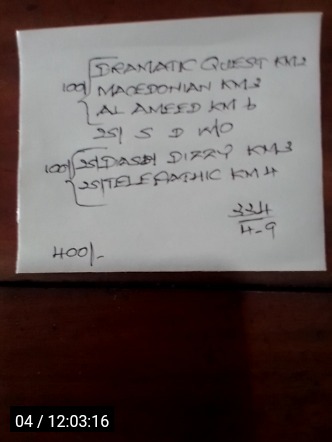 100/ DRAMATIC QUEST KM2
MACEDONIAN KM2
AL AMEED KM 6
25/ S D W/O
100/ 25/ DASH DIZZY KM3
25/ TELEPATHIC KM 4
224
4-9
400/-
04 / 12:03:16